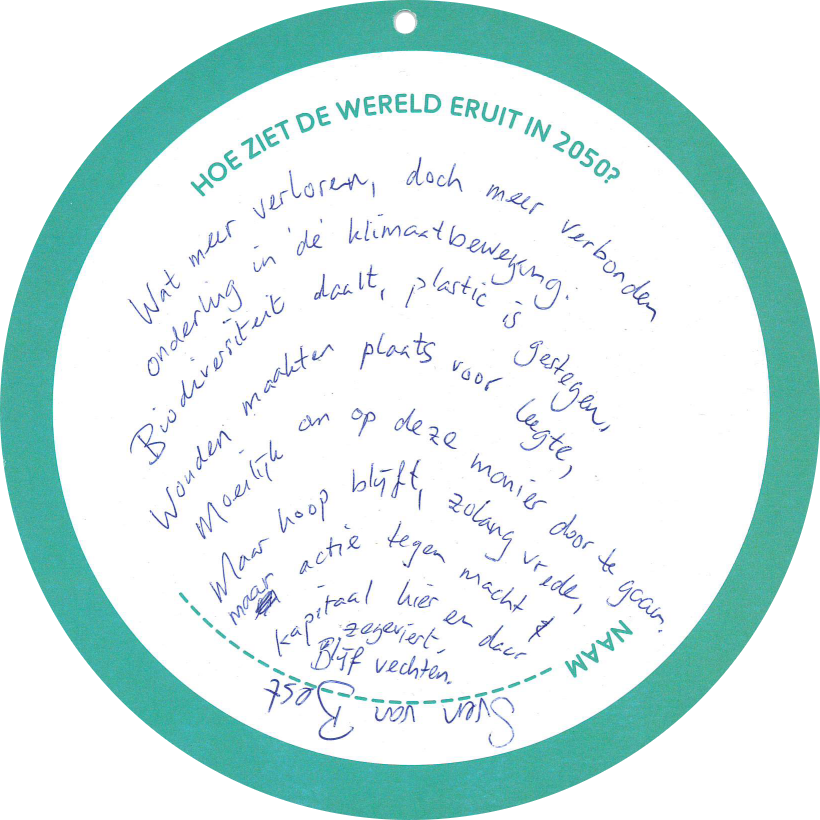 HOE ZIET DE WERELD ERUIT IN 2050?
Wat meer verloren, doch meer verbonden
onderling in 'de' klimaatbeweging.
Biodiversiteit daalt, plastic is gestegen,
Wouden maakten plaats voor leegte,
Moeilijk om op deze manier door te gaan.
Maar hoop blijft, zolang vrede,
maar actie tegen macht &
kapitaal hier en daar
zegeviert.
Blijf vechten.
NAAM
Sven van Best